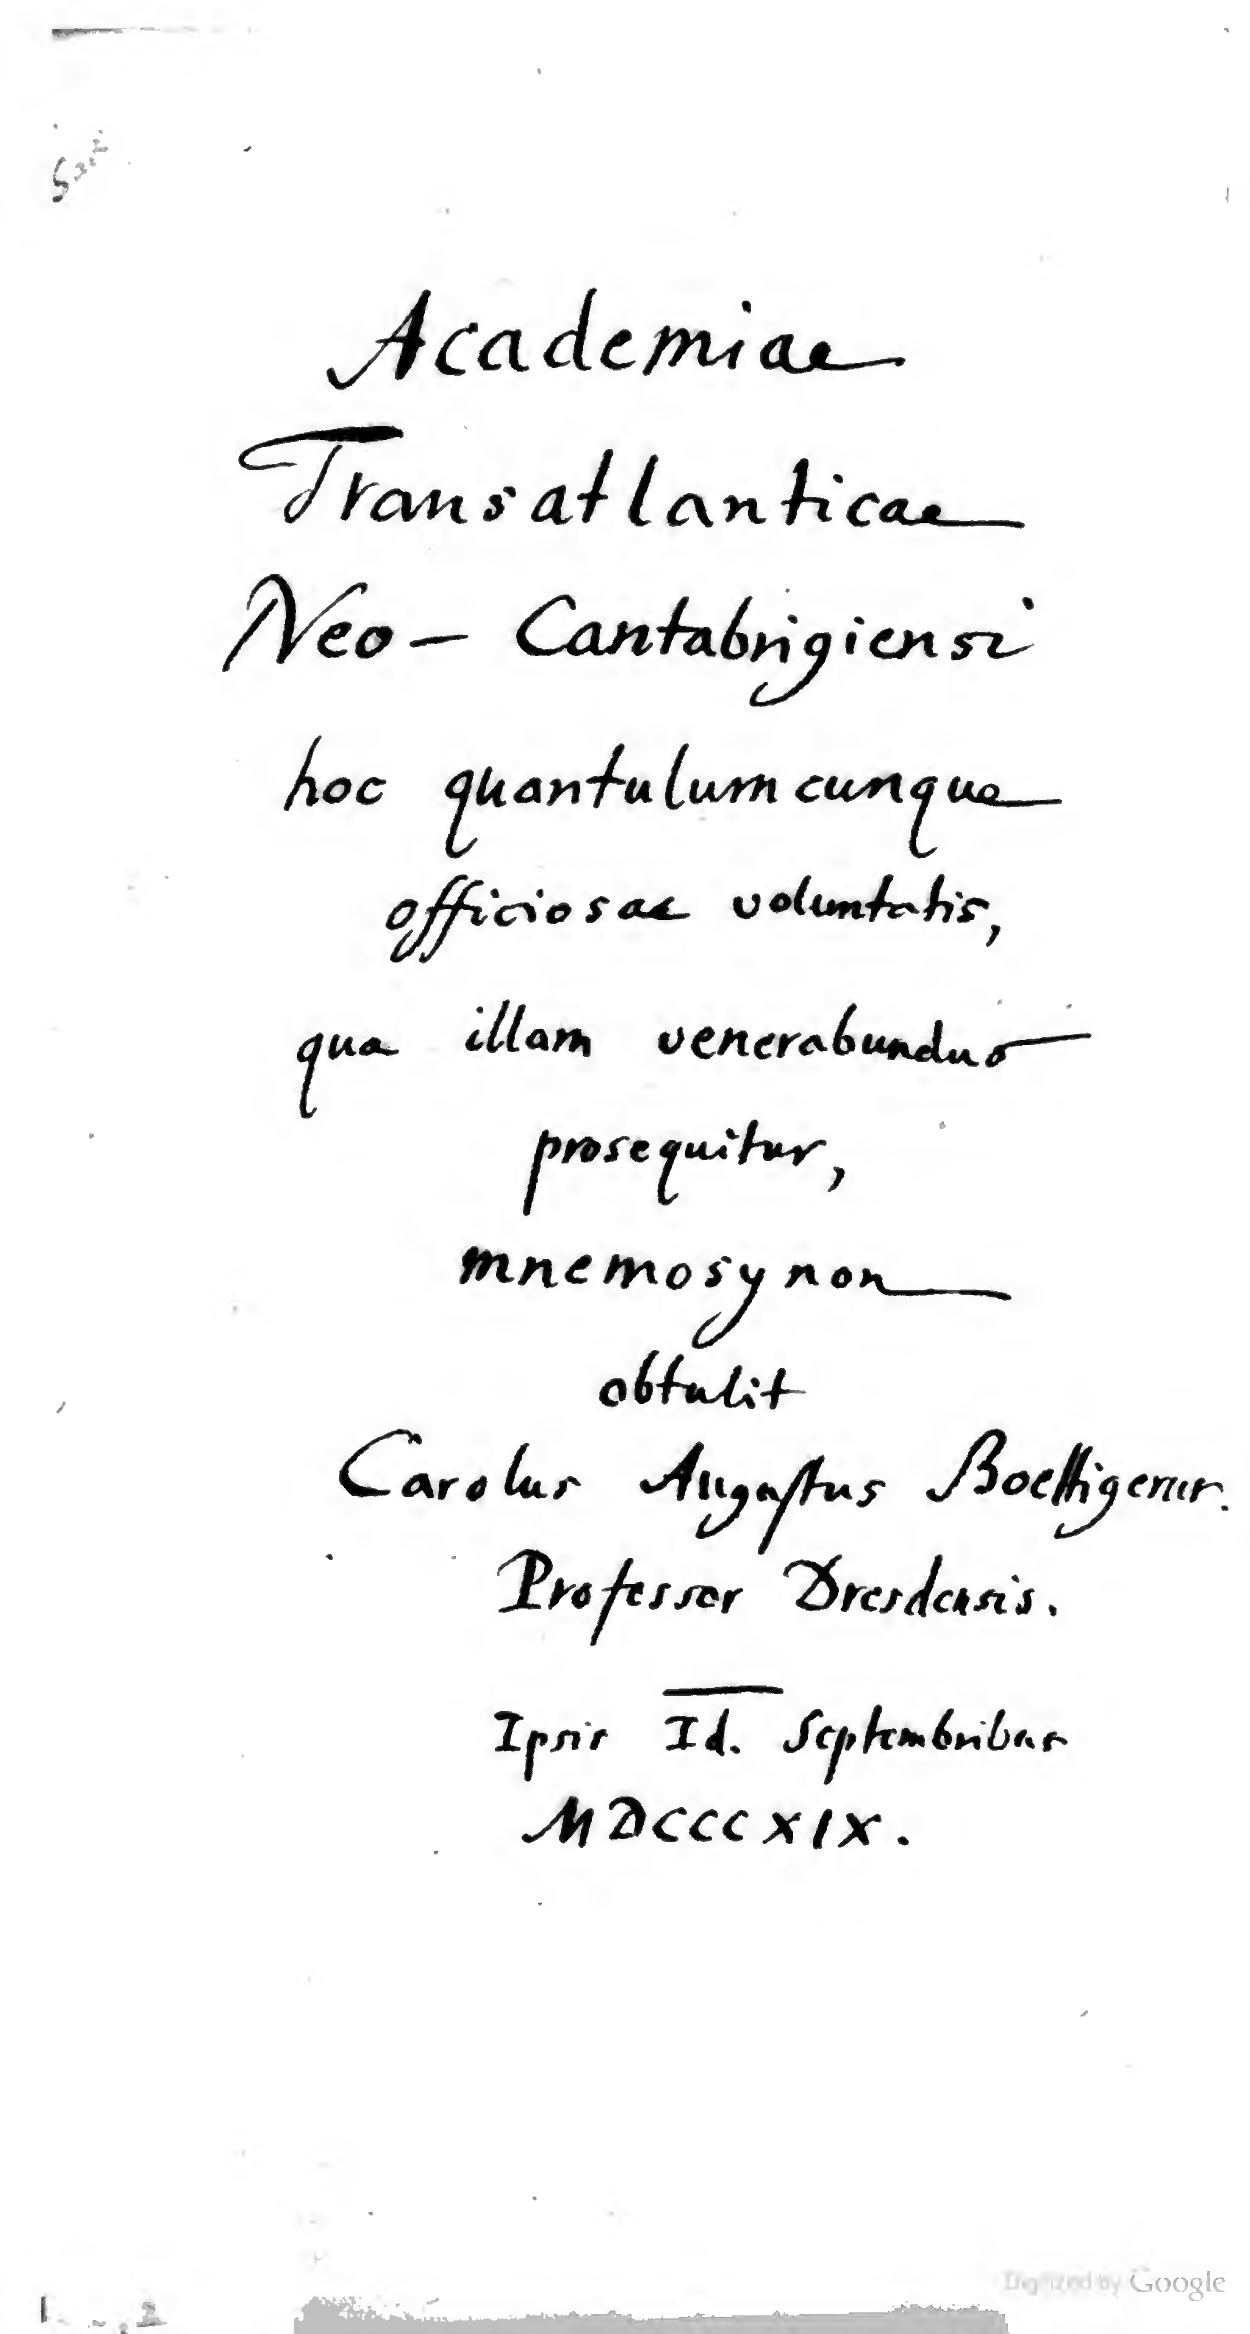 Academiae
Transatlanticae
Neo - Cantabrigiensi
hoc quantulumcunque
officiosae voluntatis,
qua illam venerabundus
prosequitur,
mnemosynon
obtulit
Carolus Augustus Boettigerus.
Professor Dresdensis.
Ipsis Id. Septembribus
MDCCCXIX.
Digitized by Google